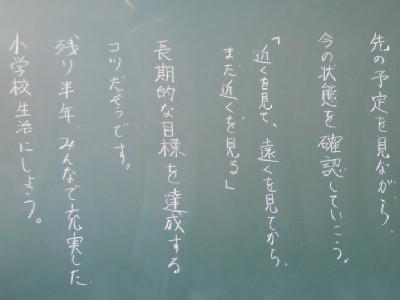 先の予定を見ながら、
今の状態を確認していこう。
「近くを見て、遠くを見てから、
また近くを見る」
長期的な目標を達成する
コツだそうです。
残り半年、みんなで充実した
小学校生活にしよう。